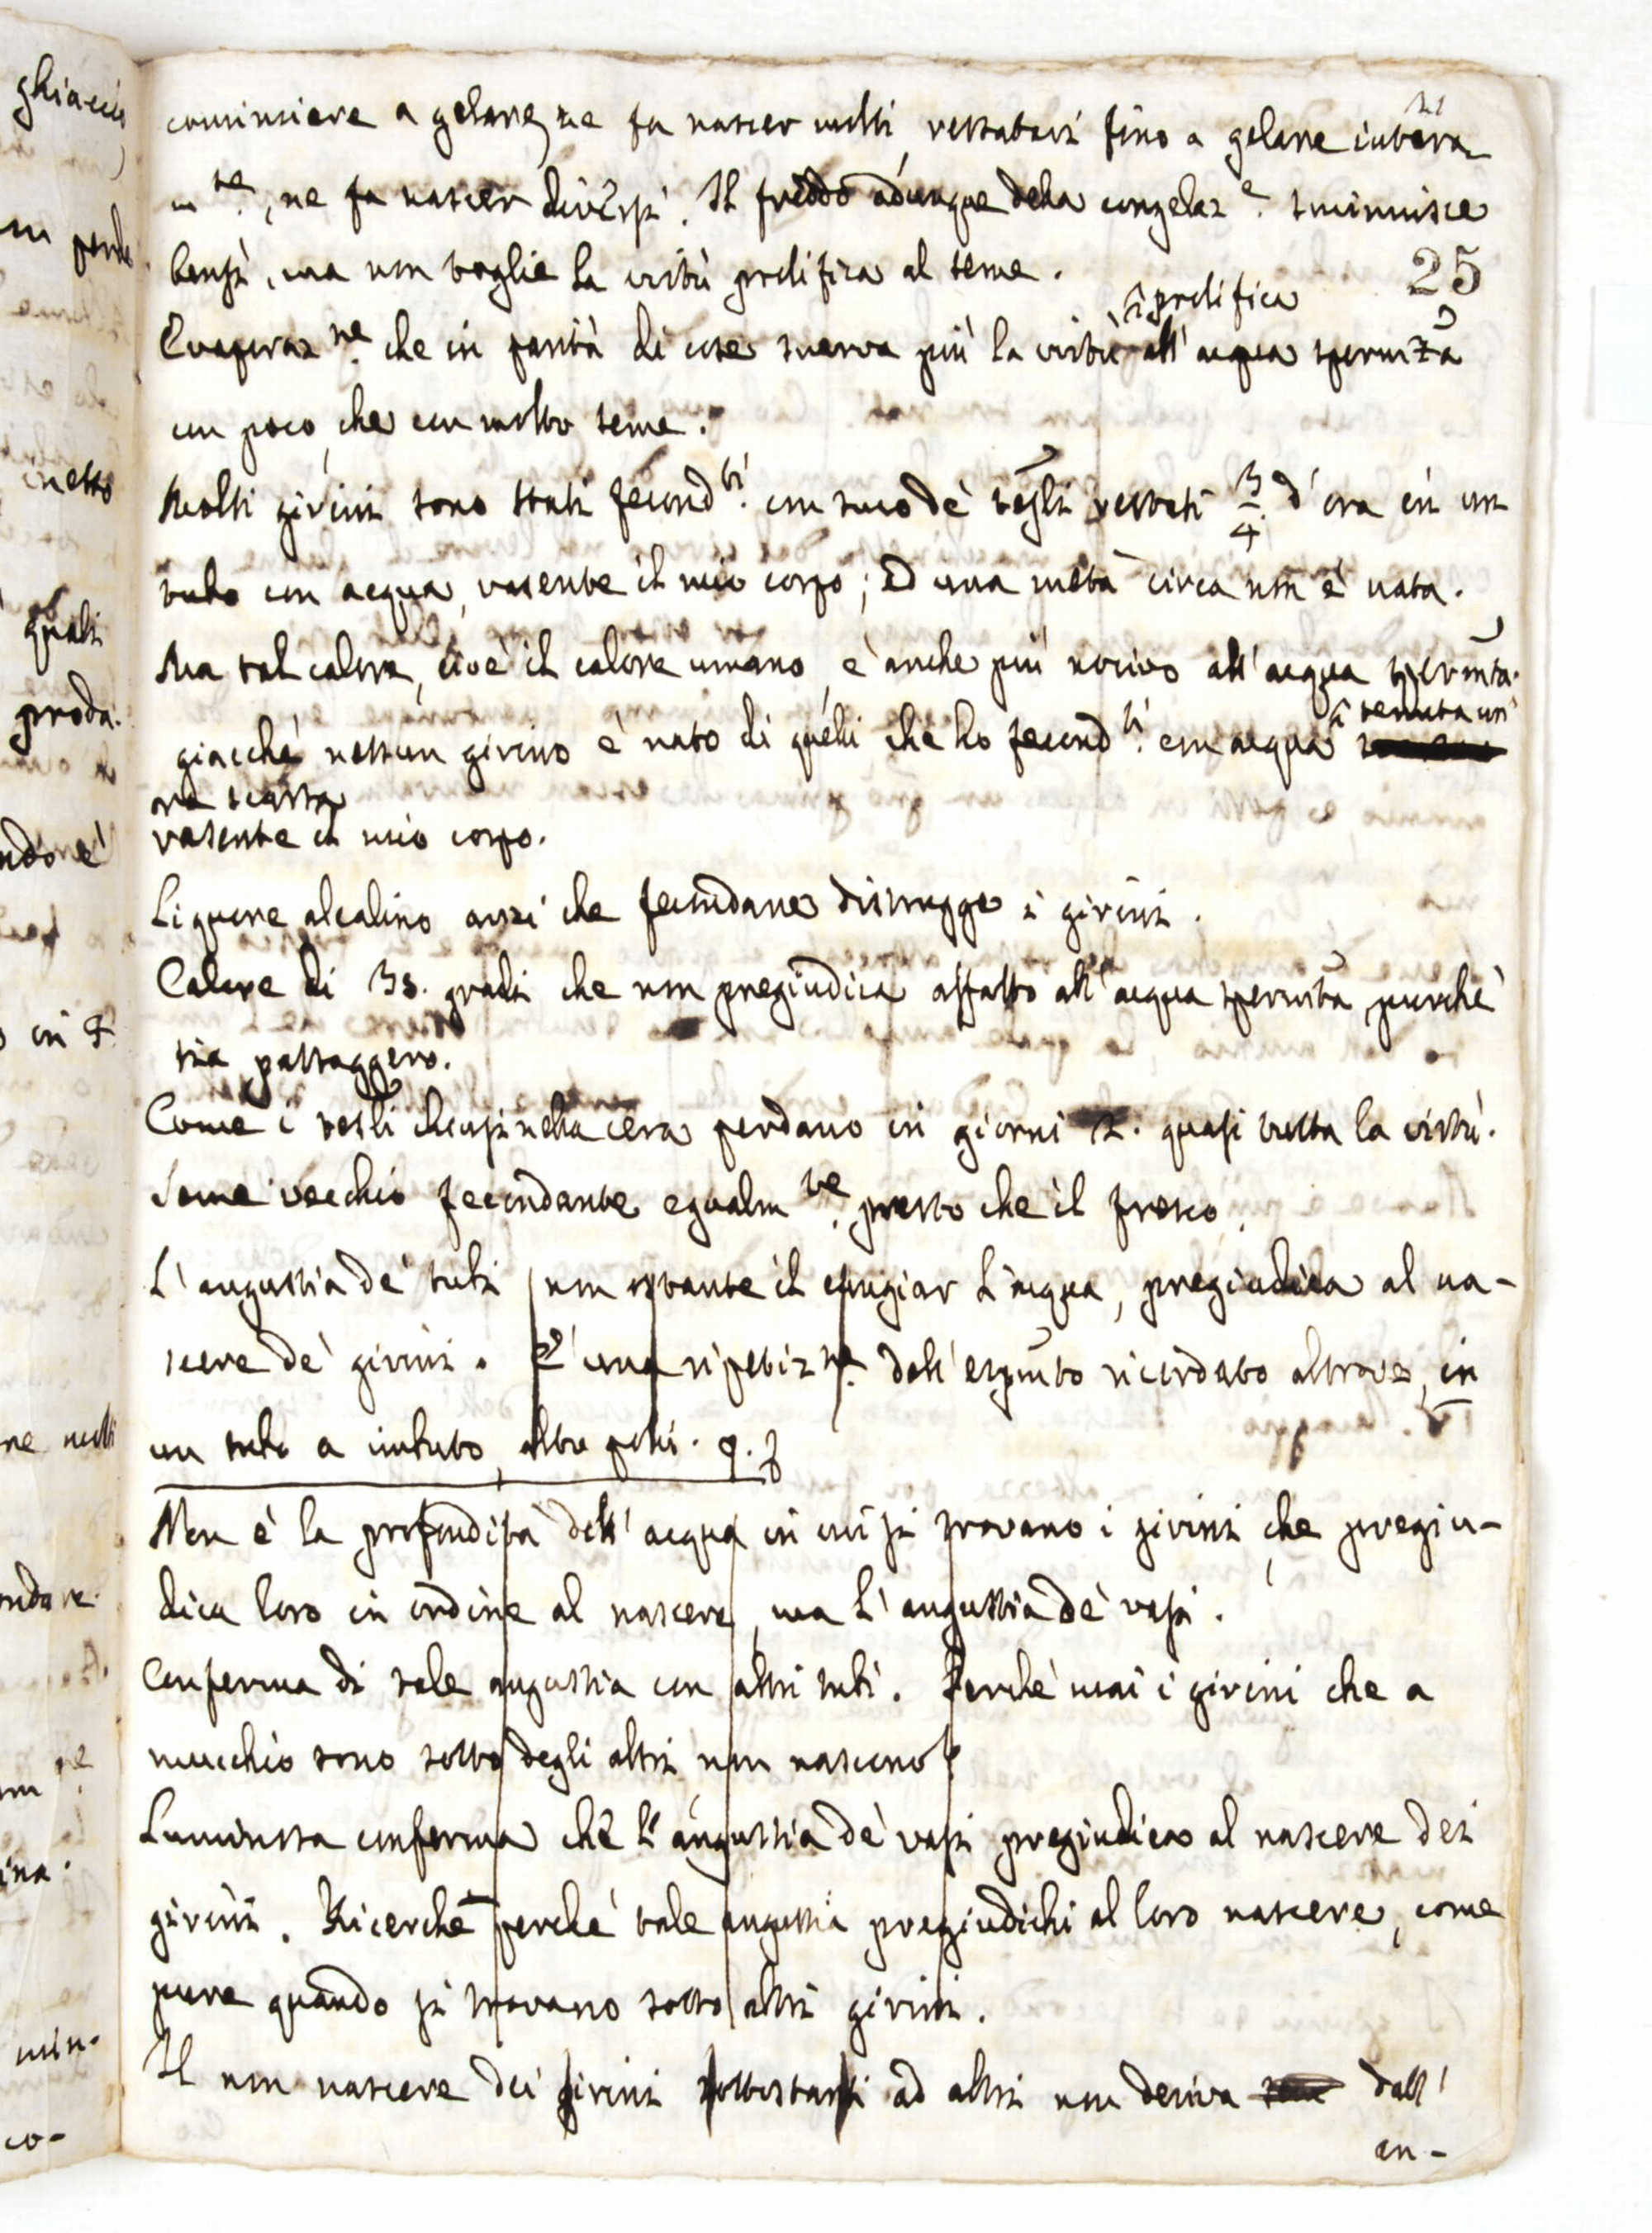 cominciare a gelare, ne fa nascer molti, restatavi fino a gelare intera-
m.te, ne fa nascer diversi. Il freddo adunque della congelaz.e sminuisce
25
bensì, ma non toglie la virtù prolifica al seme.
prolifica
Evaporaz.ne che in parità di cose snerva più la virtù all'acqua spermta
con poco, che con molto seme.
Molti girini sono stati fecond.ti con suco de' testi restati 3/4 d'ora in un
tubo con acqua, rasente il mio corpo; ed una metà circa non è nata.
Ma tal calore, cioè il calore umano, è anche più nocivo all'acqua spermta.
tenuta un'
giacchè nessun girino è nato di quelli che ho fecond.ti con acqua
ora scarsa
rasente il mio corpo.
Liquore alcalino anzi che fecondare distrugge i girini.
Calore di 35. gradi che non pregiudica affatto all'acqua spermta, purchè
sia passaggero.
Come i testi chiusi nella cera perdano in giorni 2. quasi tutta la virtù.
Seme vecchio fecondante egualm.te presto che il fresco.
L'angustia de' tubi, non ostante il cangiar l'acqua, pregiudica al na-
scere de' girini. È una ripetiz.ne dell'esprimto ricordato altrove, in
un tubo a imbuto, altro pelli. q. f
Non è la profondità dell'acqua in cui si trovano i girini, che pregiu-
dica loro in ordine al nascere, ma l'angustia de' vasi.
Conferma di tale angustia con altri tubi. Perchè mai i girini che a
mucchio sono sotto degli altri non nascono?
Luminosa conferma che l'angustia de' vasi pregiudica al nascere dei
girini. Ricerche perchè tale angustia pregiudichi al loro nascere, come
pure quando si trovano sotto altri girini.
Il non nascere dei girini sottostanti ad altri non deriva dall'
an-